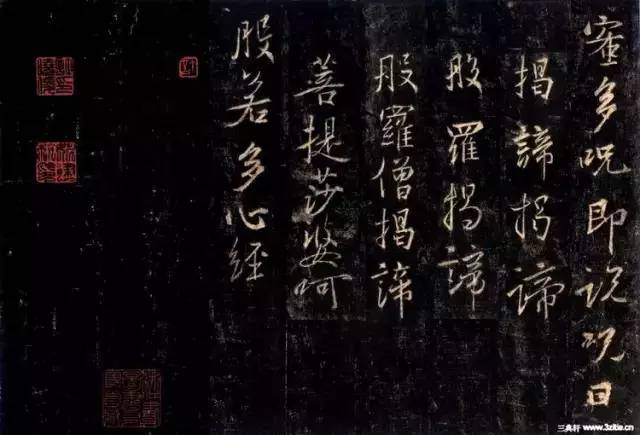 蜜多咒即说咒曰
揭諦揭諦
般羅揭諦
般羅僧揭諦
菩提莎婆呵
般若多心經
三典轩 www.3zitie.cn